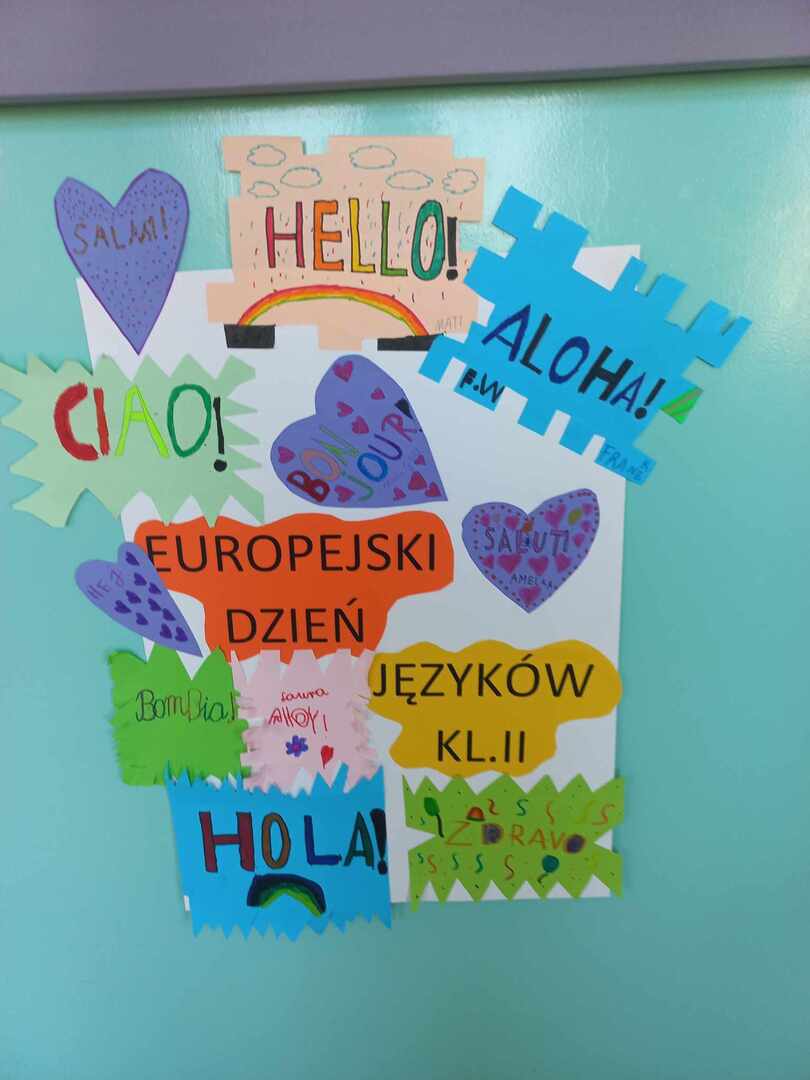 HELLO!
MATI
ALOHA!
F.W
CIAO!
BON
JOUR!
SALUT!
AMELKA
EUROPEJSKI
DZIEŃ
HEJ
BomDia!
Laura
AHOY!
JĘZYKÓW
KL.II
HOLA!
ZDRAVO